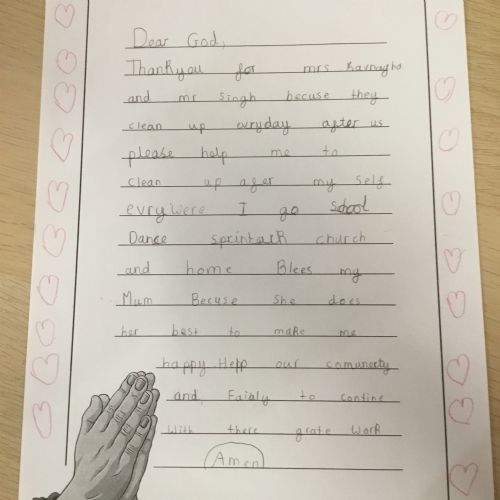 Dear God,
Thankyou for mrs Kavnagho
and mr singh becuse they
clean up evryday after us
please help me to
clean up afer my self
evrywere I go school
Dance sprintark church
and home Blees my
Mum Becuse She does
her best to make me
happy. Help our comuncety
and, Faibly to contine
with there grate work
Amen